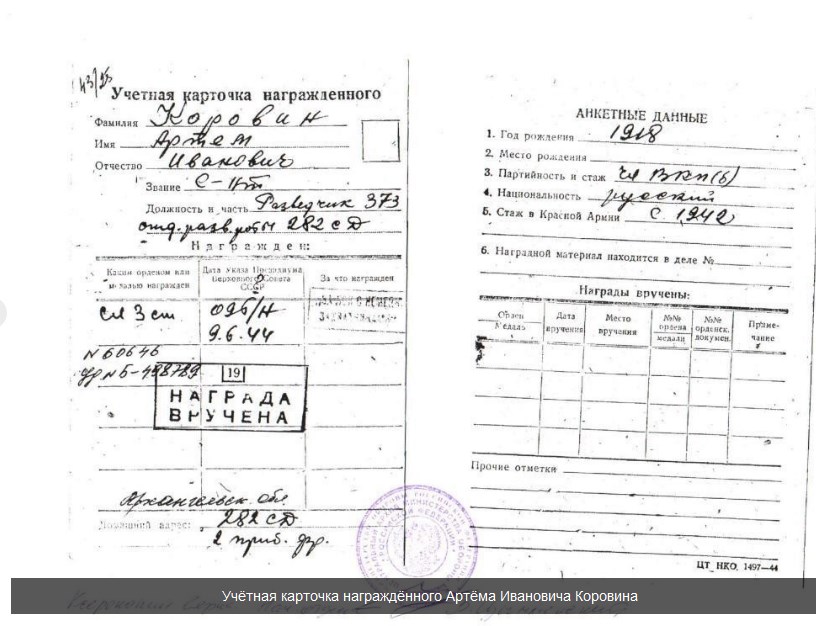 43/23
Учетная карточка награжденного
Фамилия Коровин
Имя Артем
Отчество Иванович
Звание С-нт
Должность и часть Разведчик 373
отд. разв. роты 282 сД
Награжден:
Каким орденом или медалью награжден
Дата Указа Президиума Верховного Совета СССР
За что награжден
Сл 3 ст
026/н
9.6.44
N 60646
19
НАГРАДА
ВРУЧЕНА
Архангельск. обл
Домашний адрес: 282 сД
2 приб. фр.
АНКЕТНЫЕ ДАННЫЕ
1. Год рождения 1918
2. Место рождения
3. Партийность и стаж чл ВКП(б)
4. Национальность русский
5. Стаж в Красной Армии с 1942
6. Наградной материал находится в деле №
Награды вручены:
Орден
Медаль
Дата вручения
Место вручения
№№ ордена
медали
№№ орденск. докумен.
Примечание
Прочие отметки
ЦТ НКО. 1497—44
Учётная карточка награждённого Артёма Ивановича Коровина